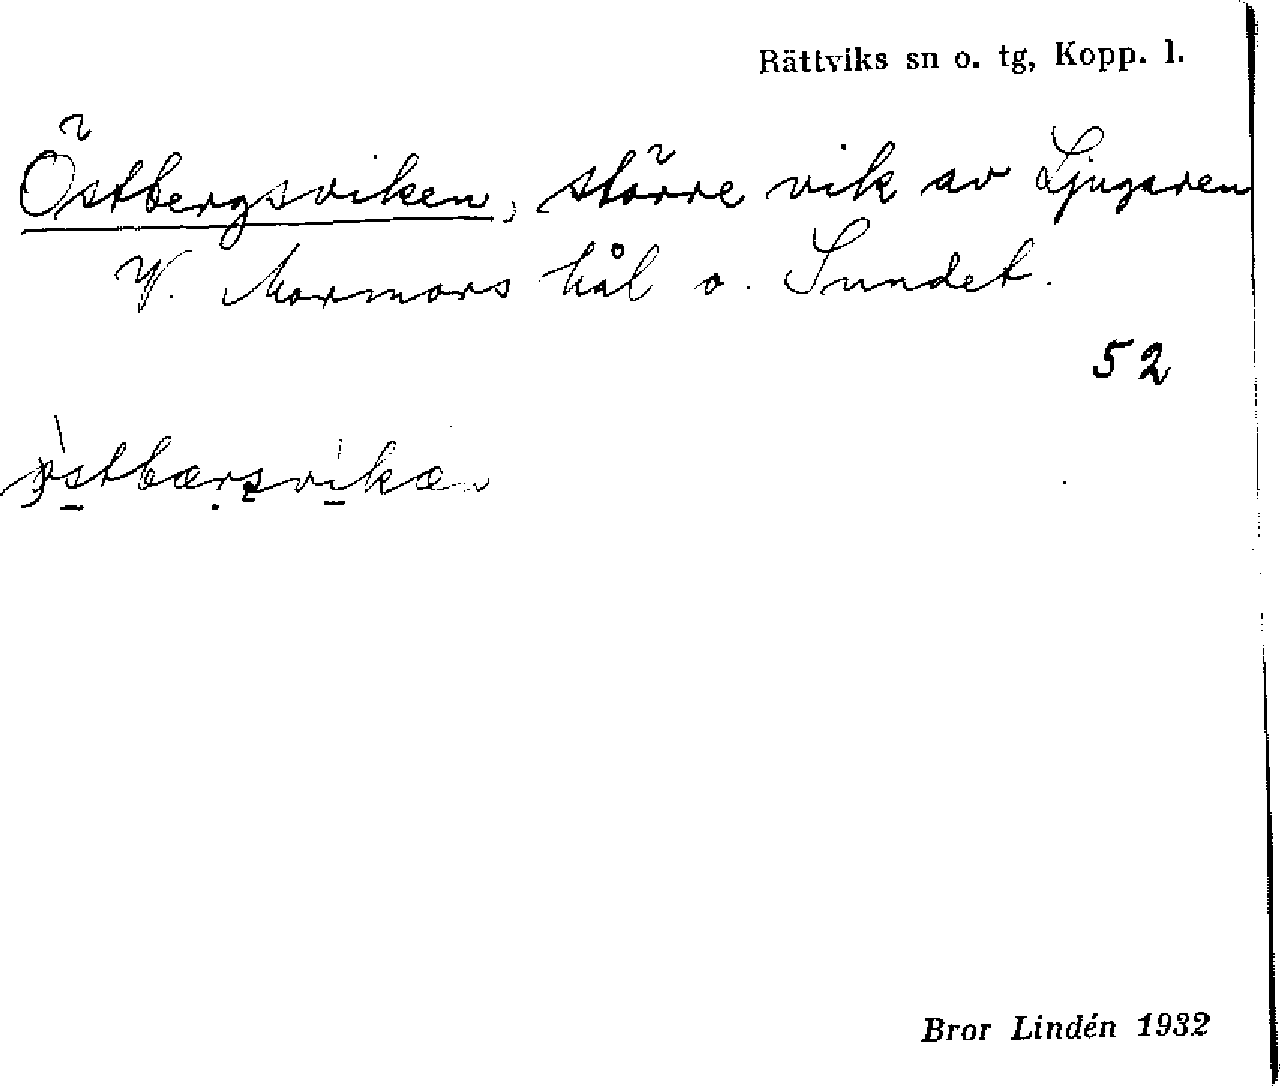 Rättviks sn o. tg, Kopp. l.
Östbergsviken, större vik av Ljugaren
V. Mormors hål o. Sundet.
52
Bror Lindén 1932